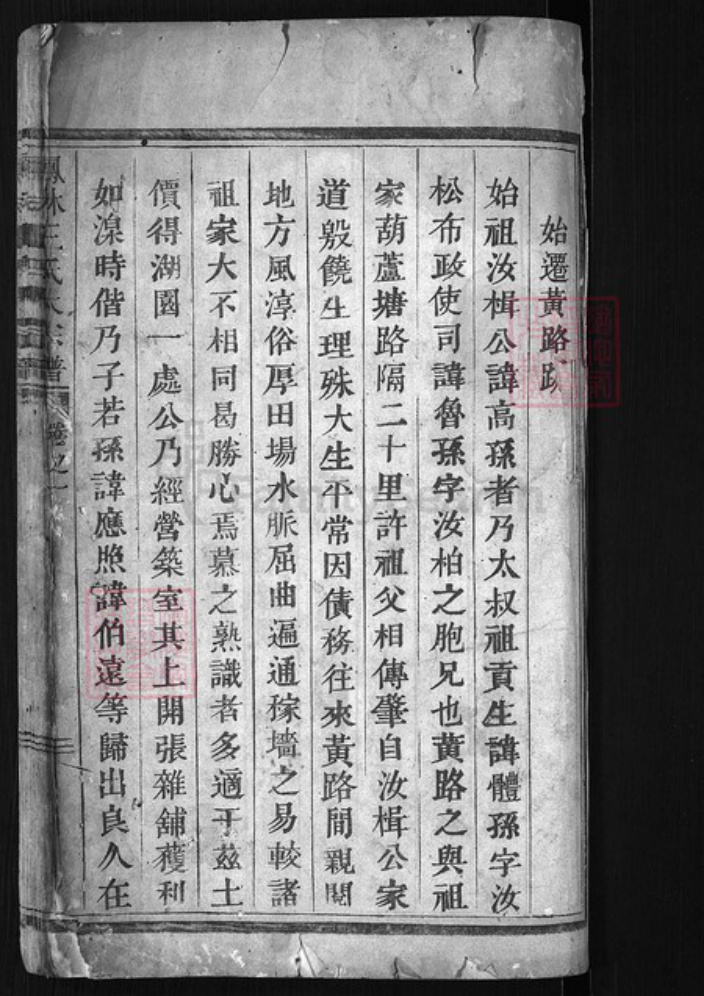 始遷黃路跡
始祖汝楫公諱高孫者乃太叔祖貢生諱體孫字汝
松布政使司諱魯孫字汝柏之胞兄也黃路之與祖
家葫蘆塘路隔二十里許祖父相傳肇自汝楫公家
道殷饒生理殊大生平常因債務往來黃路間親閱
地方風淳俗厚田場水脈屈曲遍通稼墻之易較諸
祖家大不相同曷勝心焉慕之熟識者多適于茲土
價得湖園一處公乃經營築室其上開張雜舖穫利
如湶時偕乃子若孫諱應照諱伯遠等歸出良久在
鳳林王氏大宗譜 卷之一